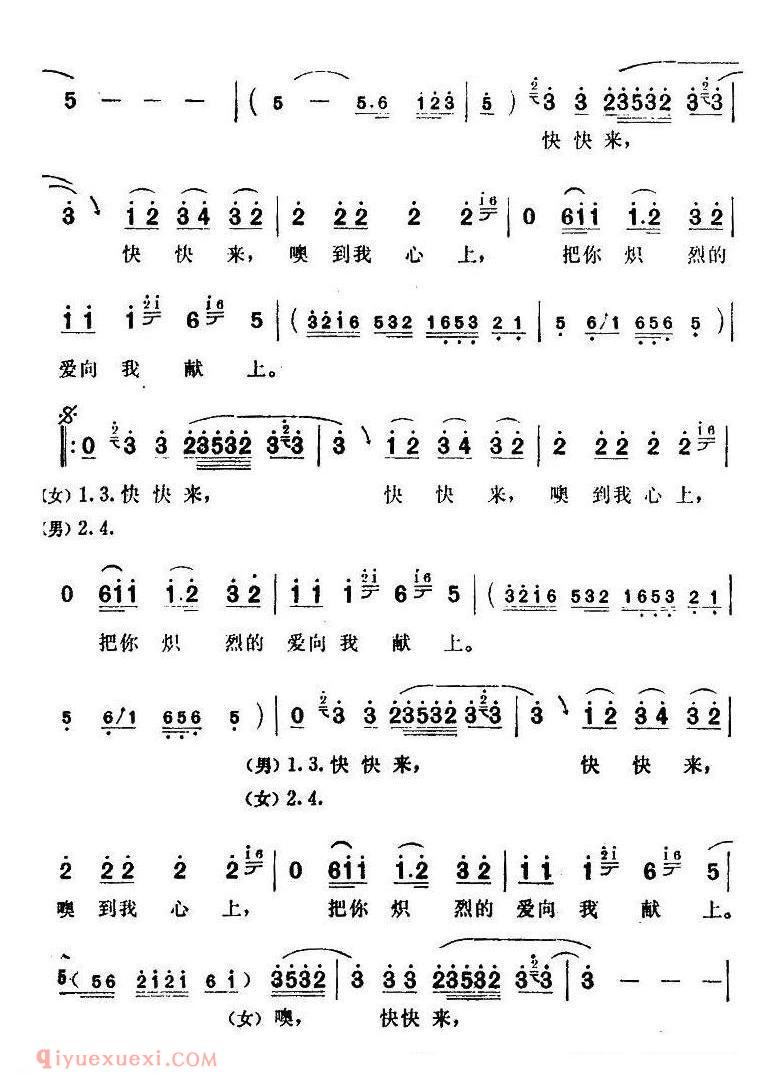 5 — — — | ( 5 — 5.6 123 | 5 ) 2 3 3 23532 3 2 3 |
快快来，
3 12 34 32 | 2 22 2 2 i6 | 0 6ii i.2 32 |
快快来，噢到我心上，把你炽烈的
ii i 2i 6 i6 5 | ( 32i6 532 1653 21 | 5 6/1 656 5 ) |
爱向我献上。
0 2 3 3 23532 3 2 3 | 3 12 34 32 | 2 22 2 2 i6 |
(女) 1.3. 快快来，快快来，噢到我心上，
(男) 2.4.
0 6ii i.2 32 | ii i 2i 6 i6 5 | ( 32i6 532 1653 21 |
把你炽烈的爱向我献上。
5 6/1 656 5 ) | 0 2 3 3 23532 3 2 3 | 3 12 34 32 |
(男) 1.3. 快快来，快快来，
(女) 2.4.
2 22 2 2 i6 | 0 6ii i.2 32 | ii i 2i 6 i6 5 |
噢到我心上，把你炽烈的爱向我献上。
5 ( 56 i2i2i 6i ) 3532 | 3 33 23532 3 2 3 | 3 — — — |
(女) 噢，快快来，
qiyuexuexi.com